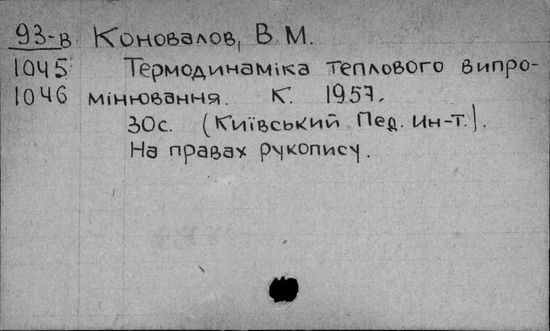 93-в Коновалов, В. М.
1045 Термодинаміка теплового випро-
1046 мінювання. К. 1957.
30с. (Київський Пед. ин-т.).
На правах рукопису.